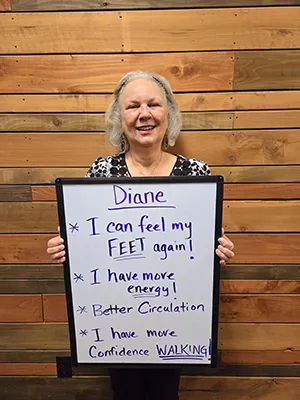 Diane
* I can feel my
FEET again!
* I have more
energy!
* Better Circulation
* I have more
Confidence WALKING!